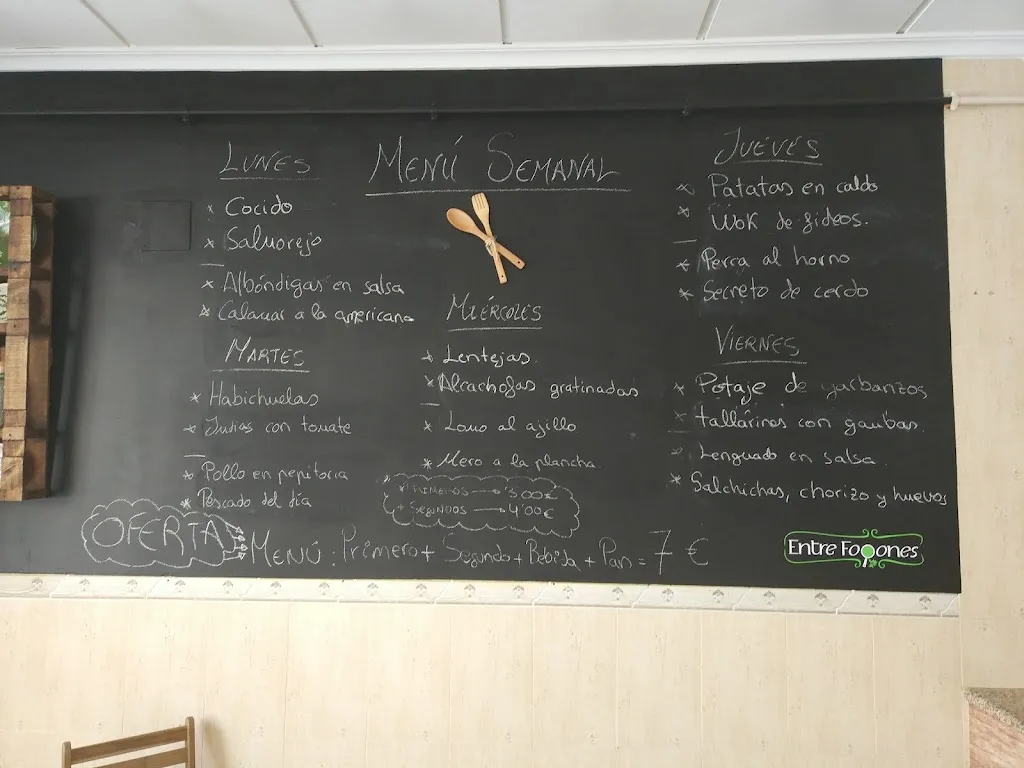 MENÚ SEMANAL
LUNES
* Cocido
* Salmorejo
* Albóndigas en salsa
* Calamar a la americana
MARTES
* Habichuelas
* Judías con tomate
* Pollo en pepitoria
* Pescado del día
MIÉRCOLES
* Lentejas.
* Alcachofas gratinadas
* Lomo al ajillo
* Mero a la plancha.
JUEVES
* Patatas en caldo
* Wok de fideos.
* Perca al horno
* Secreto de cerdo
VIERNES
* Potaje de garbanzos
* tallarines con gambas.
* Lenguado en salsa.
* Salchichas, chorizo y huevos
* PRIMEROS → 3'00€
* SEGUNDOS → 4'00€
OFERTA
MENÚ: Primero + Segundo + Bebida + Pan = 7 €
Entre Fogones